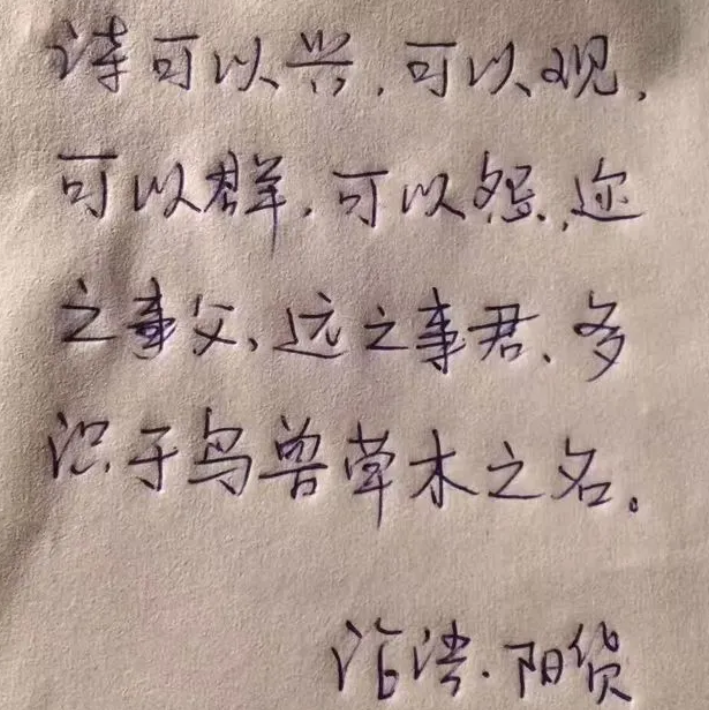 诗可以兴,可以观,
可以群,可以怨,迩
之事父、远之事君、多
识于鸟兽草木之名。
论语·阳货